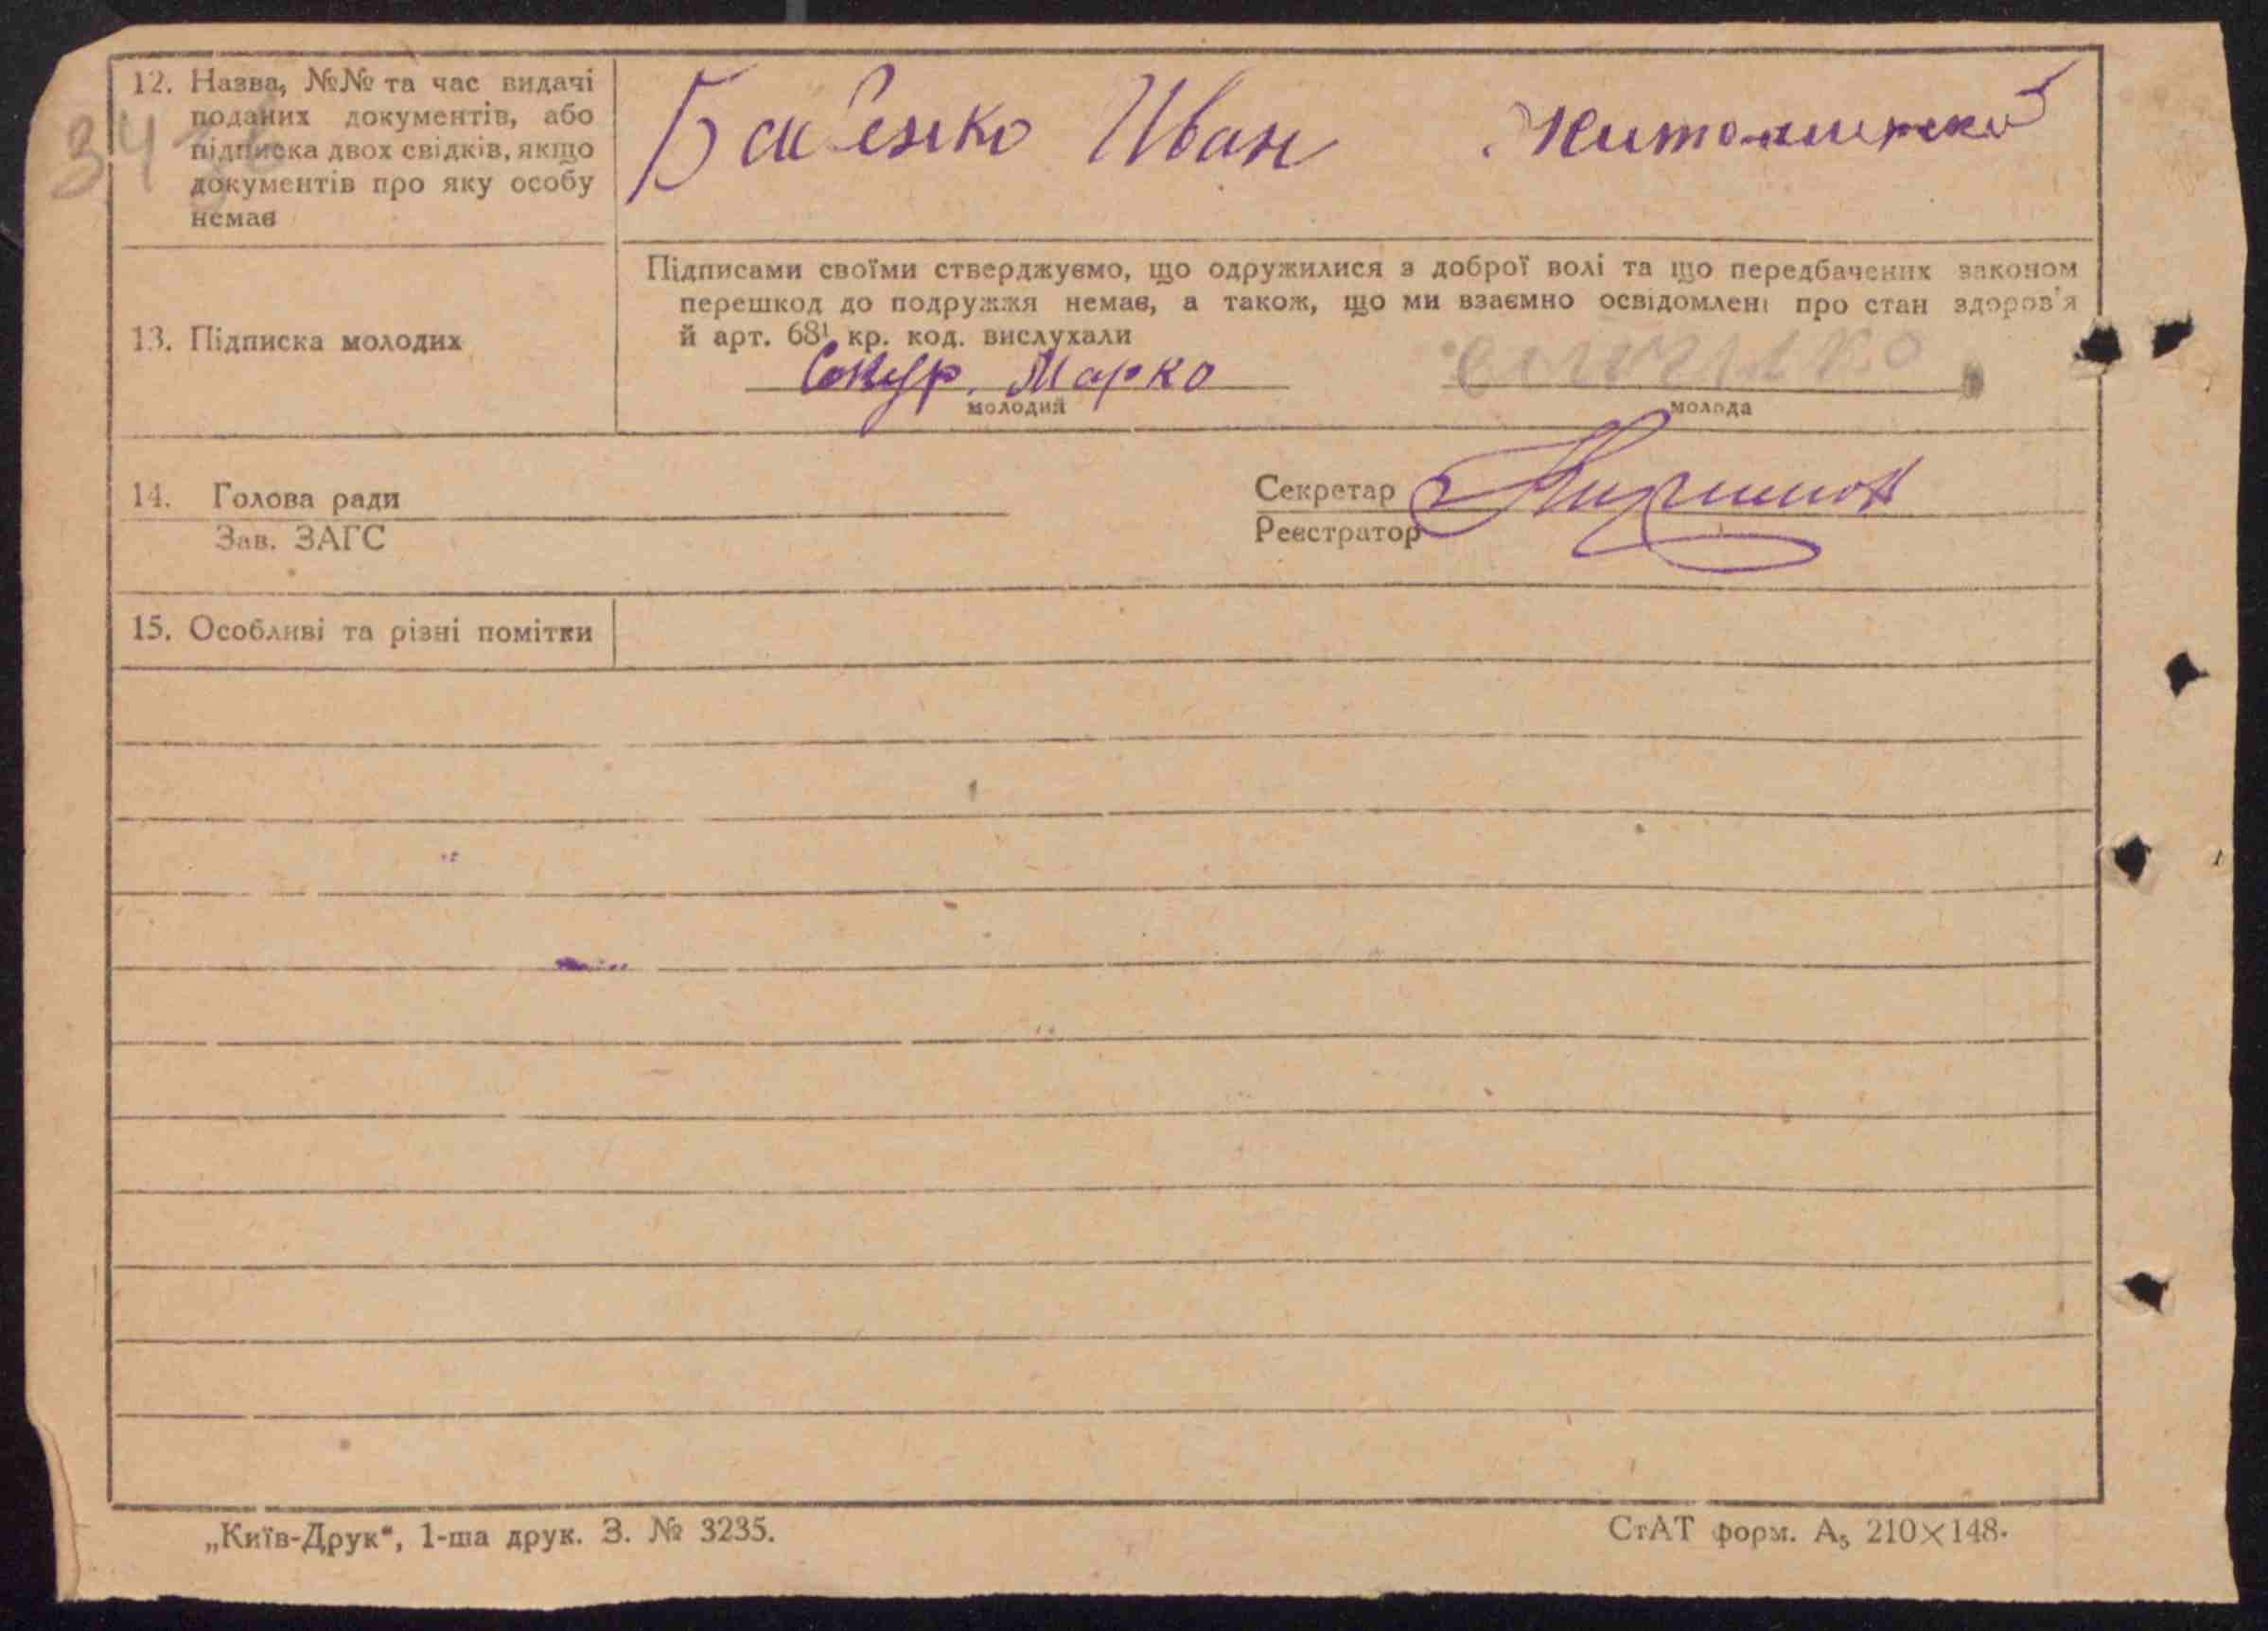 12. Назва, №№ та час видачі
поданих документів, або
підписка двох свідків, якщо
документів про яку особу
немає
34
Иван
13. Підписка молодих
Підписами своїми стверджуємо, що одружилися з доброї волі та що передбачених законом
перешкод до подружжя немає, а також, що ми взаємно освідомлені про стан здоров'я
й арт. 68¹ кр. код. вислухали
Сокур. Марко
молодий
молода
14. Голова ради
Зав. ЗАГС
Секретар
Реєстратор
15. Особливі та різні помітки
„Київ-Друк“, 1-ша друк. З. № 3235.
СтАТ форм. А₅ 210×148.